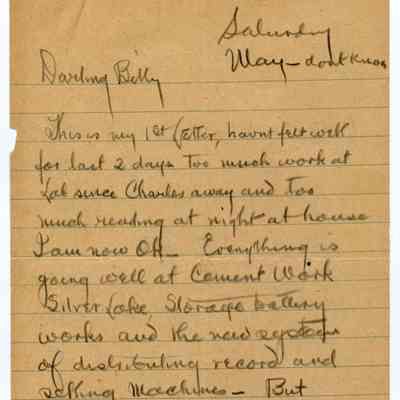 Saturday
May - dont know
Darling Billy
This is my 1st letter, havnt felt well
for last 2 days Too much work at
Lab since Charles away and Too
much reading at night at house
I am now OK - Everything is
going well at Cement Work
Silver Lake, Storage battery
works and the new system
of distributing record and
selling machines - But